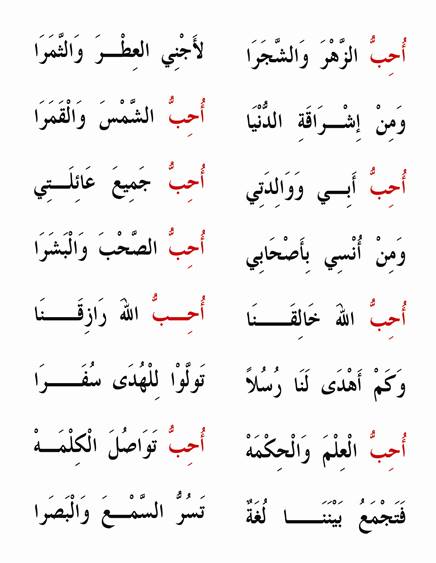 أُحِبُّ الزَّهْرَ وَالشَّجَرَا لأَجْنِي العِطْرَ وَالثَّمَرَا
وَمِنْ إِشْرَاقَةِ الدُّنْيَا أُحِبُّ الشَّمْسَ وَالْقَمَرَا
أُحِبُّ أَبِي وَوَالِدَتِي أُحِبُّ جَمِيعَ عَائِلَتِي
وَمِنْ أُنْسِي بِأَصْحَابِي أُحِبُّ الصَّحْبَ وَالْبَشَرَا
أُحِبُّ اللهَ خَالِقَنَا أُحِبُّ اللهَ رَازِقَنَا
وَكَمْ أَهْدَى لَنَا رُسُلاً تَولَّوْا لِلْهُدَى سُفَرَا
أُحِبُّ الْعِلْمَ وَالْحِكْمَهْ أُحِبُّ تَوَاصُلَ الْكِلْمَهْ
فَتَجْمَعُ بَيْنَنَا لُغَةٌ تَسُرُّ السَّمْعَ وَالْبَصَرَا